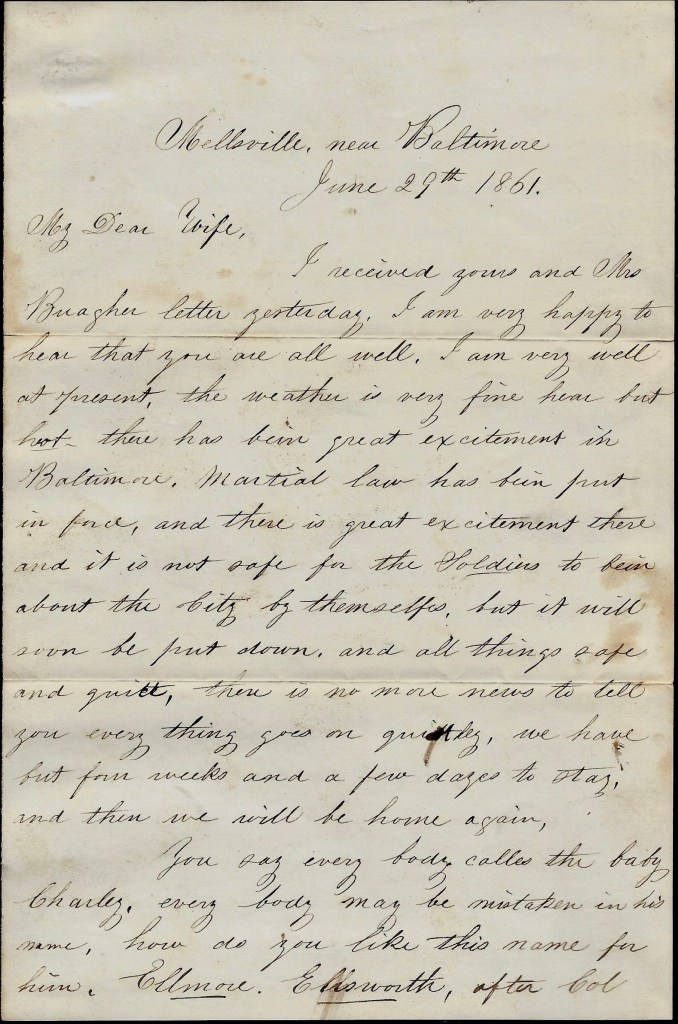 Mellsville, near Baltimore
June 29th 1861.
My Dear Wife,
I received yours and Mrs
Buagher letter yesterday. I am very happy to
hear that you are all well. I am very well
at present, the weather is very fine hear but
hot there has bein great excitement in
Baltimore. Martial law has bein put
in force, and there is great excitement there
and it is not safe for the Soldiers to bein
about the City by themselfes, but it will
soon be put down. and all things safe
and quitt, there is no more news to tell
you every thing goes on quittley, we have
but four weeks and a few dayes to stay,
and then we will be home again,
You say every body calles the baby
Charley. every body may be mistaken in his
name, how do you like this name for
him. Ellmore. Ellsworth, after Col